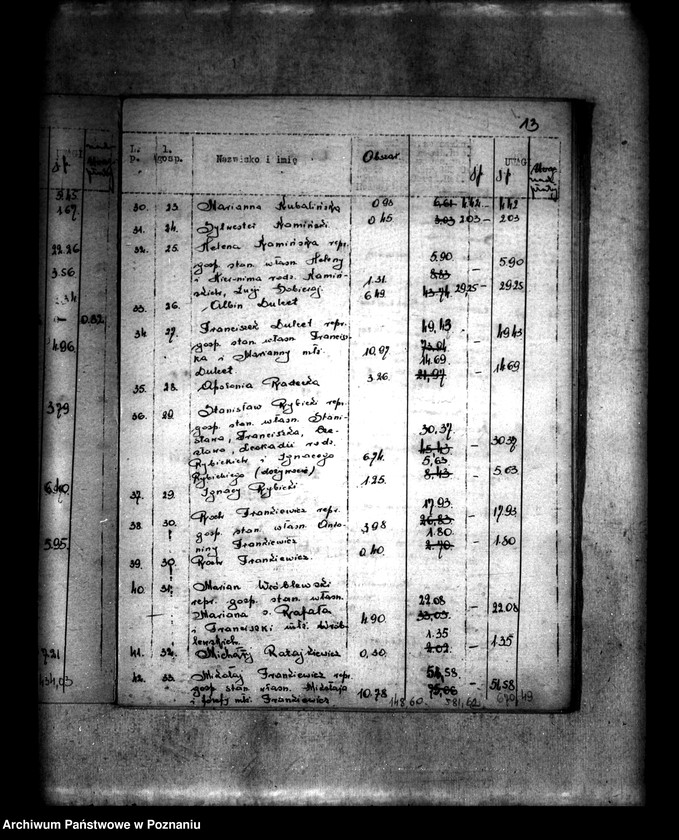 13
L. p. l. gosp. Nazwisko i imię Obszar zł UWAGI zł
30. 23. Marianna Kubalińska 0.98 6,61 4.42 – 4.42
31. 24. Sylwester Kamiński 0.45 3.03 2.03 – 2.03
32. 25. Helena Kamińska repr.
gosp. stan. własn. Heleny 5.90
i Hieronima rodz. Kamiń- 8.83 – 5.90
skich, 1.31
33. 26. Albin Dulcet 6.49 43.74 29,25 – 29.25
34 27. Franciszek Dulcet repr.
gosp. stan. własn. Francisz- 49,43 49.43
ka i Marianny młż. 10,97 73.94 –
Dulcet 14.69
35. 28. Apolonia Radecka 3.26 21,97 – 14.69
36. 29. Stanisław Rybicki repr.
gosp. stan. własn. Stani-
sława, Franciszka, Cze- 30.37
sława, Leokadii rodz. 45,43 – 30.37
Rybickich i Ignacego 6.74 5,63
Rybickiego (dożywocie) 8,43 – 5.63
37. 29. Ignacy Rybicki 1.25
38. 30. Roch Frankiewicz repr. 17.93
gosp. stan. własn. Anto- 3.98 26,83 – 17.93
niny Frankiewicz 1.80
39. 30. Roch Frankiewicz 0.40 2.70 – 1.80
40. 31. Marian Wróblewski
repr. gosp. stan. własn. 22.08
Mariana s. Rafała 4.90 33,03 – 22.08
i Franciszki młż. Wrób-
lewskich 1.35
41. 32. Michał Ratajkiewicz 0,30 2.02 – 1.35
42. 33. Mikołaj Frankiewicz repr. 51,58
gosp. stan. własn. Mikołaja 10.78 75,06 – 51.58
i Józefy młż. Frankiewicz 148,60 581,62 670,49
zł
5.45
1.67
22.26
3.56
0.82
4.96
3.79
6.40
5.95
7.21
434,03
Archiwum Państwowe w Poznaniu